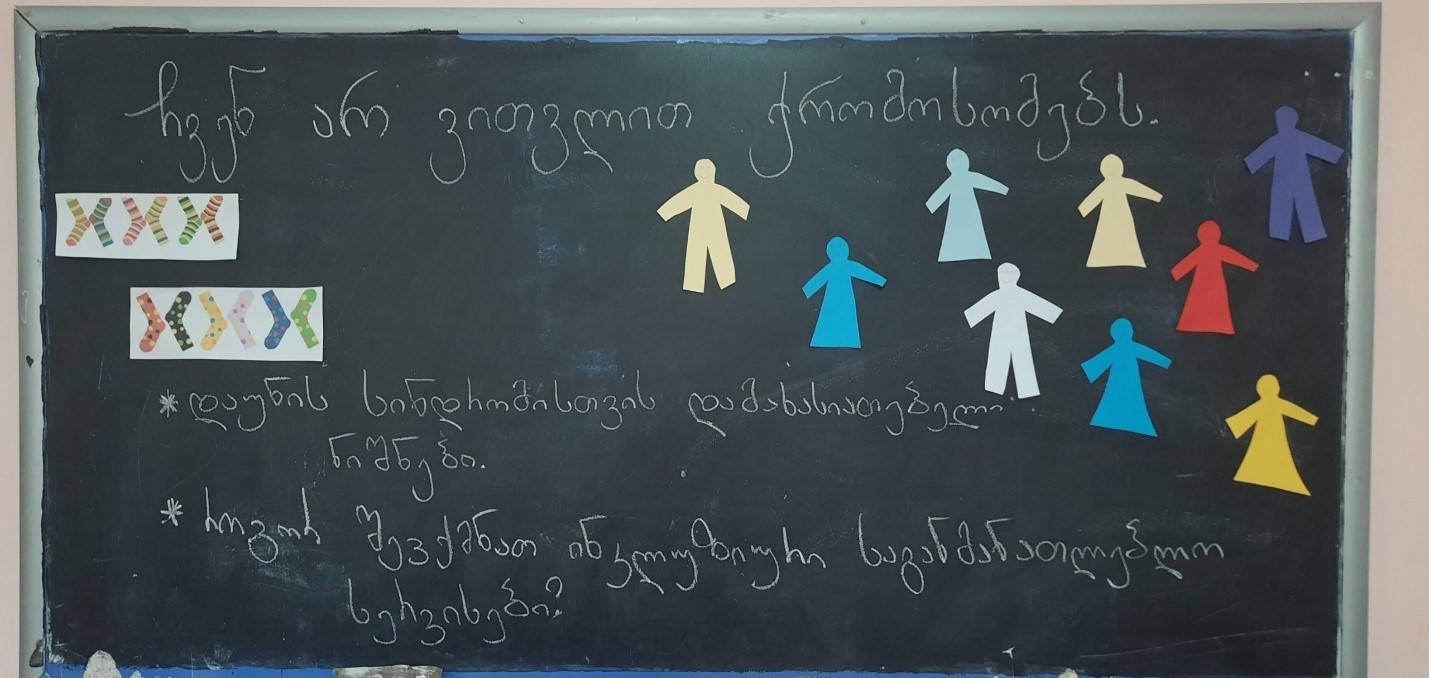 ჩვენ არ ვითვლით ქრომოსომებს.
* დაუნის სინდრომისთვის დამახასიათებელი
ნიშნები.
* როგორ შევქმნათ ინკლუზიური საგანმანათლებლო
სერვისები?